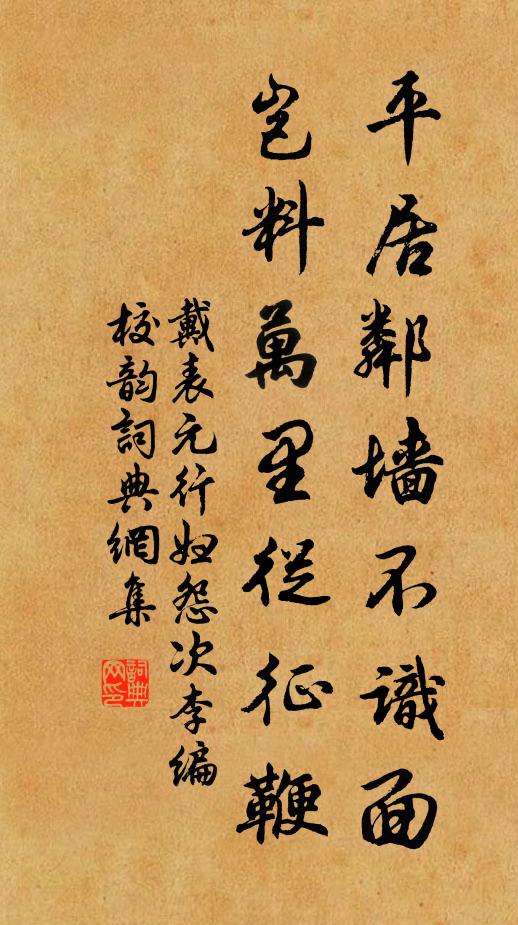 平居鄰墙不識面
豈料萬里從征鞭
戴表元行妞怨次李編
校韵詞典網集
詞典
网印